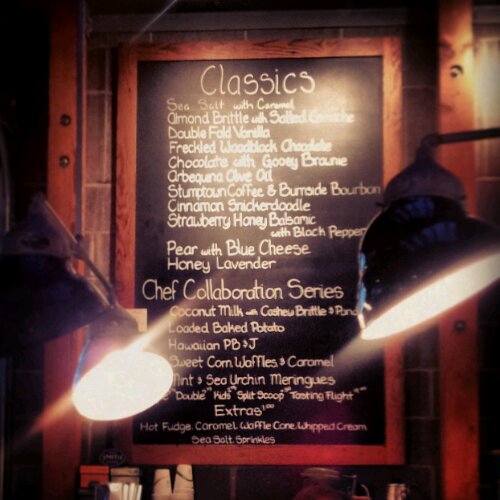 Classics
Sea Salt with Caramel
Almond Brittle with Salted Ganache
Double Fold Vanilla
Freckled Woodblock Chocolate
Chocolate with Gooey Brownie
Arbequina Olive Oil
Stumptown Coffee & Burnside Bourbon
Cinnamon Snickerdoodle
Strawberry Honey Balsamic
with Black Pepper
Pear with Blue Cheese
Honey Lavender
Chef Collaboration Series
Coconut Milk with Cashew Brittle &
Loaded Baked Potato
Hawaiian PB & J
Sweet Corn Waffles & Caramel
Mint & Sea Urchin Meringues
Double Kids Split Scoop Tasting Flight
Extras
Hot Fudge, Caramel, Waffle Cone, Whipped Cream
Sea Salt, Sprinkles